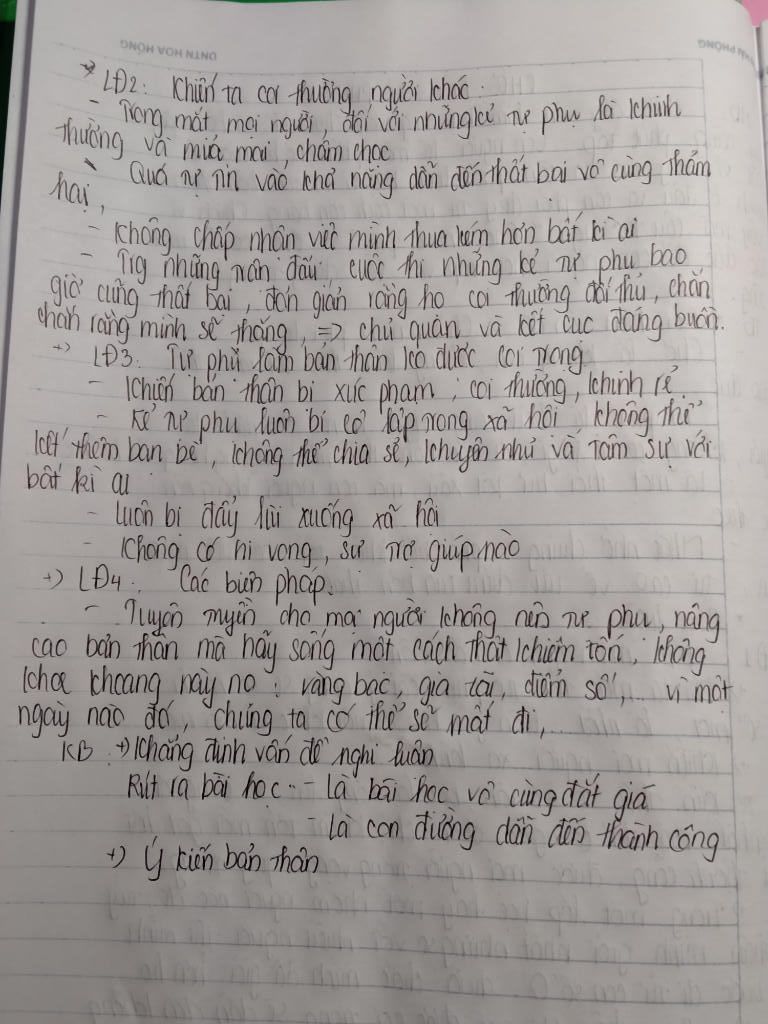 DNTN HOA HONG
* LĐ2: Khiến ta coi thường người khác.
- Trong mắt mọi người, đối với những kẻ tự phụ là khinh
thường và mỉa mai, châm chọc
- Quá tự tin vào khả năng dẫn đến thất bại vô cùng thảm
hại,
- Không chấp nhận việc mình thua kém hơn bất kì ai
- Trg những trận đấu cuộc thi những kẻ tự phụ bao
giờ cũng thất bại, đơn giản rằng họ coi thường đối thủ, chắn
chắn rằng mình sẽ thắng, => chủ quan và kết cục đáng buồn.
+) LĐ3: Tự phụ làm bản thân ko được coi trọng
- Khiến bản thân bị xúc phạm, coi thường, khinh rẻ
- Kẻ tự phụ luôn bị cô lập trong xã hội, không thể
kết thêm bạn bè, không thể chia sẻ, khuyên nhủ và tâm sự với
bất kì ai
- Luôn bị đẩy lùi xuống xã hội
- Không có hi vọng, sự trợ giúp nào
+) LĐ4: Các biện pháp.
- Truyên truyền cho mọi người không nên tự phụ, nâng
cao bản thân mà hãy sống một cách thật khiêm tốn, không
khoe khoang này nọ: vàng bạc, gia tài, điểm số,... vì một
ngày nào đó, chúng ta có thể sẽ mất đi,...
KB: +) Khẳng định vấn đề nghị luận
Rút ra bài học: - là bài học vô cùng đắt giá
- là con đường dẫn đến thành công
+) Ý kiến bản thân